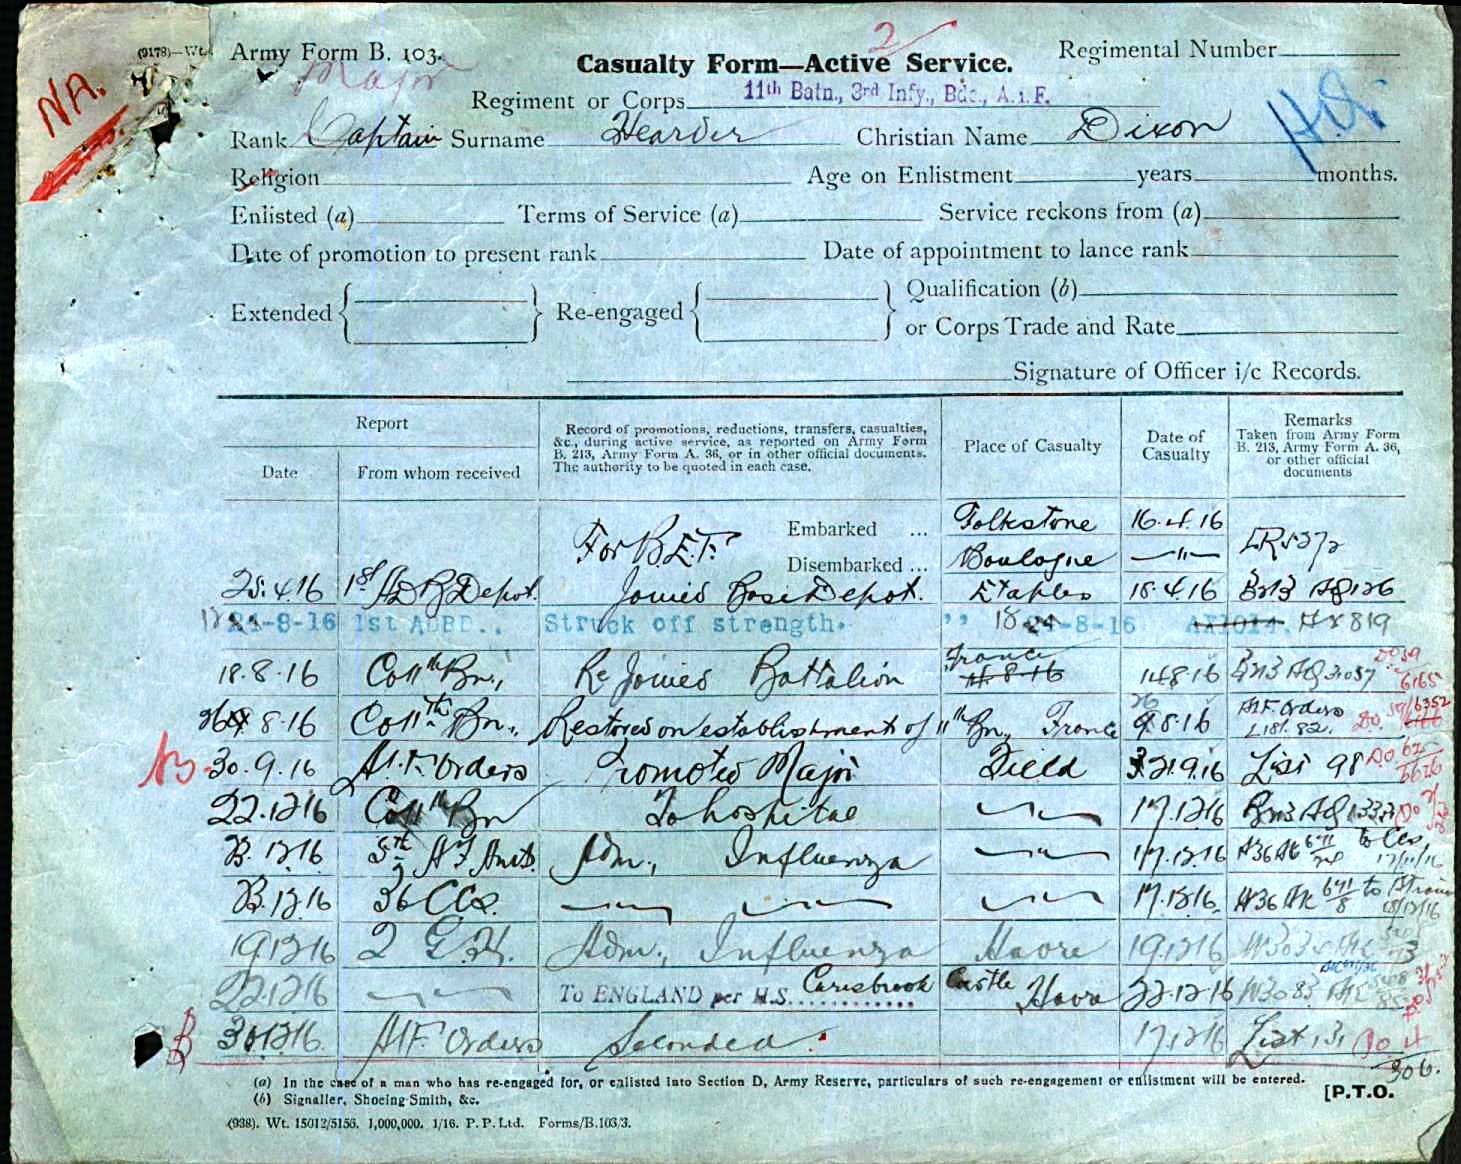 (9178)—Wt.
Army Form B. 103.
2
Casualty Form—Active Service.
Regimental Number
NA.
Major
Regiment or Corps 11th Batn., 3rd Infy., Bde., A.I.F.
Rank Captain Surname Hearder Christian Name Dixon
Religion Age on Enlistment years months.
Enlisted (a) Terms of Service (a) Service reckons from (a)
Date of promotion to present rank Date of appointment to lance rank
Extended Re-engaged Qualification (b)
or Corps Trade and Rate
Signature of Officer i/c Records.
Report
Date
From whom received
Record of promotions, reductions, transfers, casualties,
&c., during active service, as reported on Army Form
B. 213, Army Form A. 36, or in other official documents.
The authority to be quoted in each case.
Place of Casualty
Date of
Casualty
Remarks
Taken from Army Form
B. 213, Army Form A. 36,
or other official
documents
For B.E.F. Embarked ... Folkestone 16.4.16
Disembarked ... Boulogne —"—
25.4.16 1st ADBDepot. Joined Base Depot. Etaples 18.4.16 B213
-8-16 1st ADBD.. Struck off strength. ,, 18 -8-16 819
18.8.16 CO 11th Bn., ReJoined Battalion France 14.8.16
26 8.16 CO 11th Bn., Restored on establishment of 11th Bn, France 26 8.16 AIF Orders
List 82.
30.9.16 A.I.F. Orders Promoted Major Field 21.9.16 List 98
22.12.16 CO 11th Bn To hospital —"— 17.12.16
5th Adm., Influenza —"— 17.12.16 A36 to CCS
36 CCS. —"— —"— —"— 17.12.16
19.12.16 2 G.H. Adm., Influenza Havre 19.12.16
22.12.16 —"— To ENGLAND per H.S. Carisbrook Castle Havre 22.12.16 W3083
30.12.16. AIF Orders Seconded. 17.12.16 List 131
306.
(a) In the case of a man who has re-engaged for, or enlisted into Section D, Army Reserve, particulars of such re-engagement or enlistment will be entered.
(b) Signaller, Shoeing-Smith, &c.
[P.T.O.
(938). Wt. 15012/5156. 1,000,000. 1/16. P. P. Ltd. Forms/B.103/3.